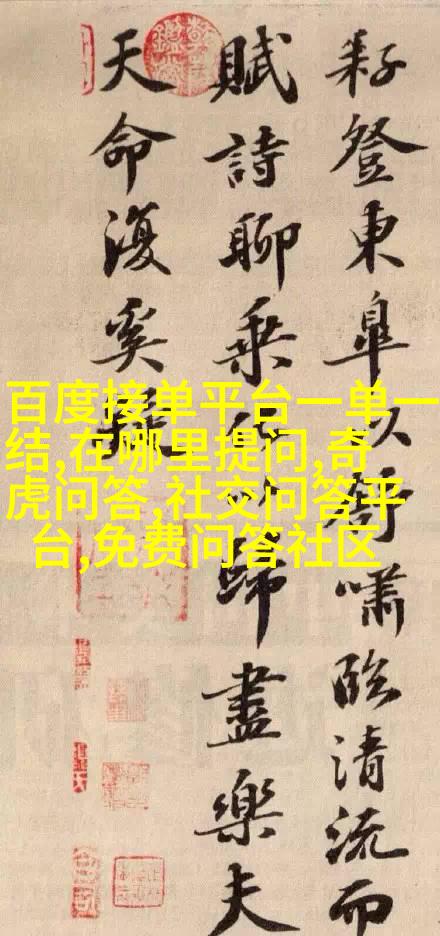 耔登東皐以舒嘯臨清流而
賦詩聊乘化以歸盡樂夫
天命復奚疑
百度接单平台一单一
结,在哪里提问,奇
虎问答,社交问答平
台,免费问答社区